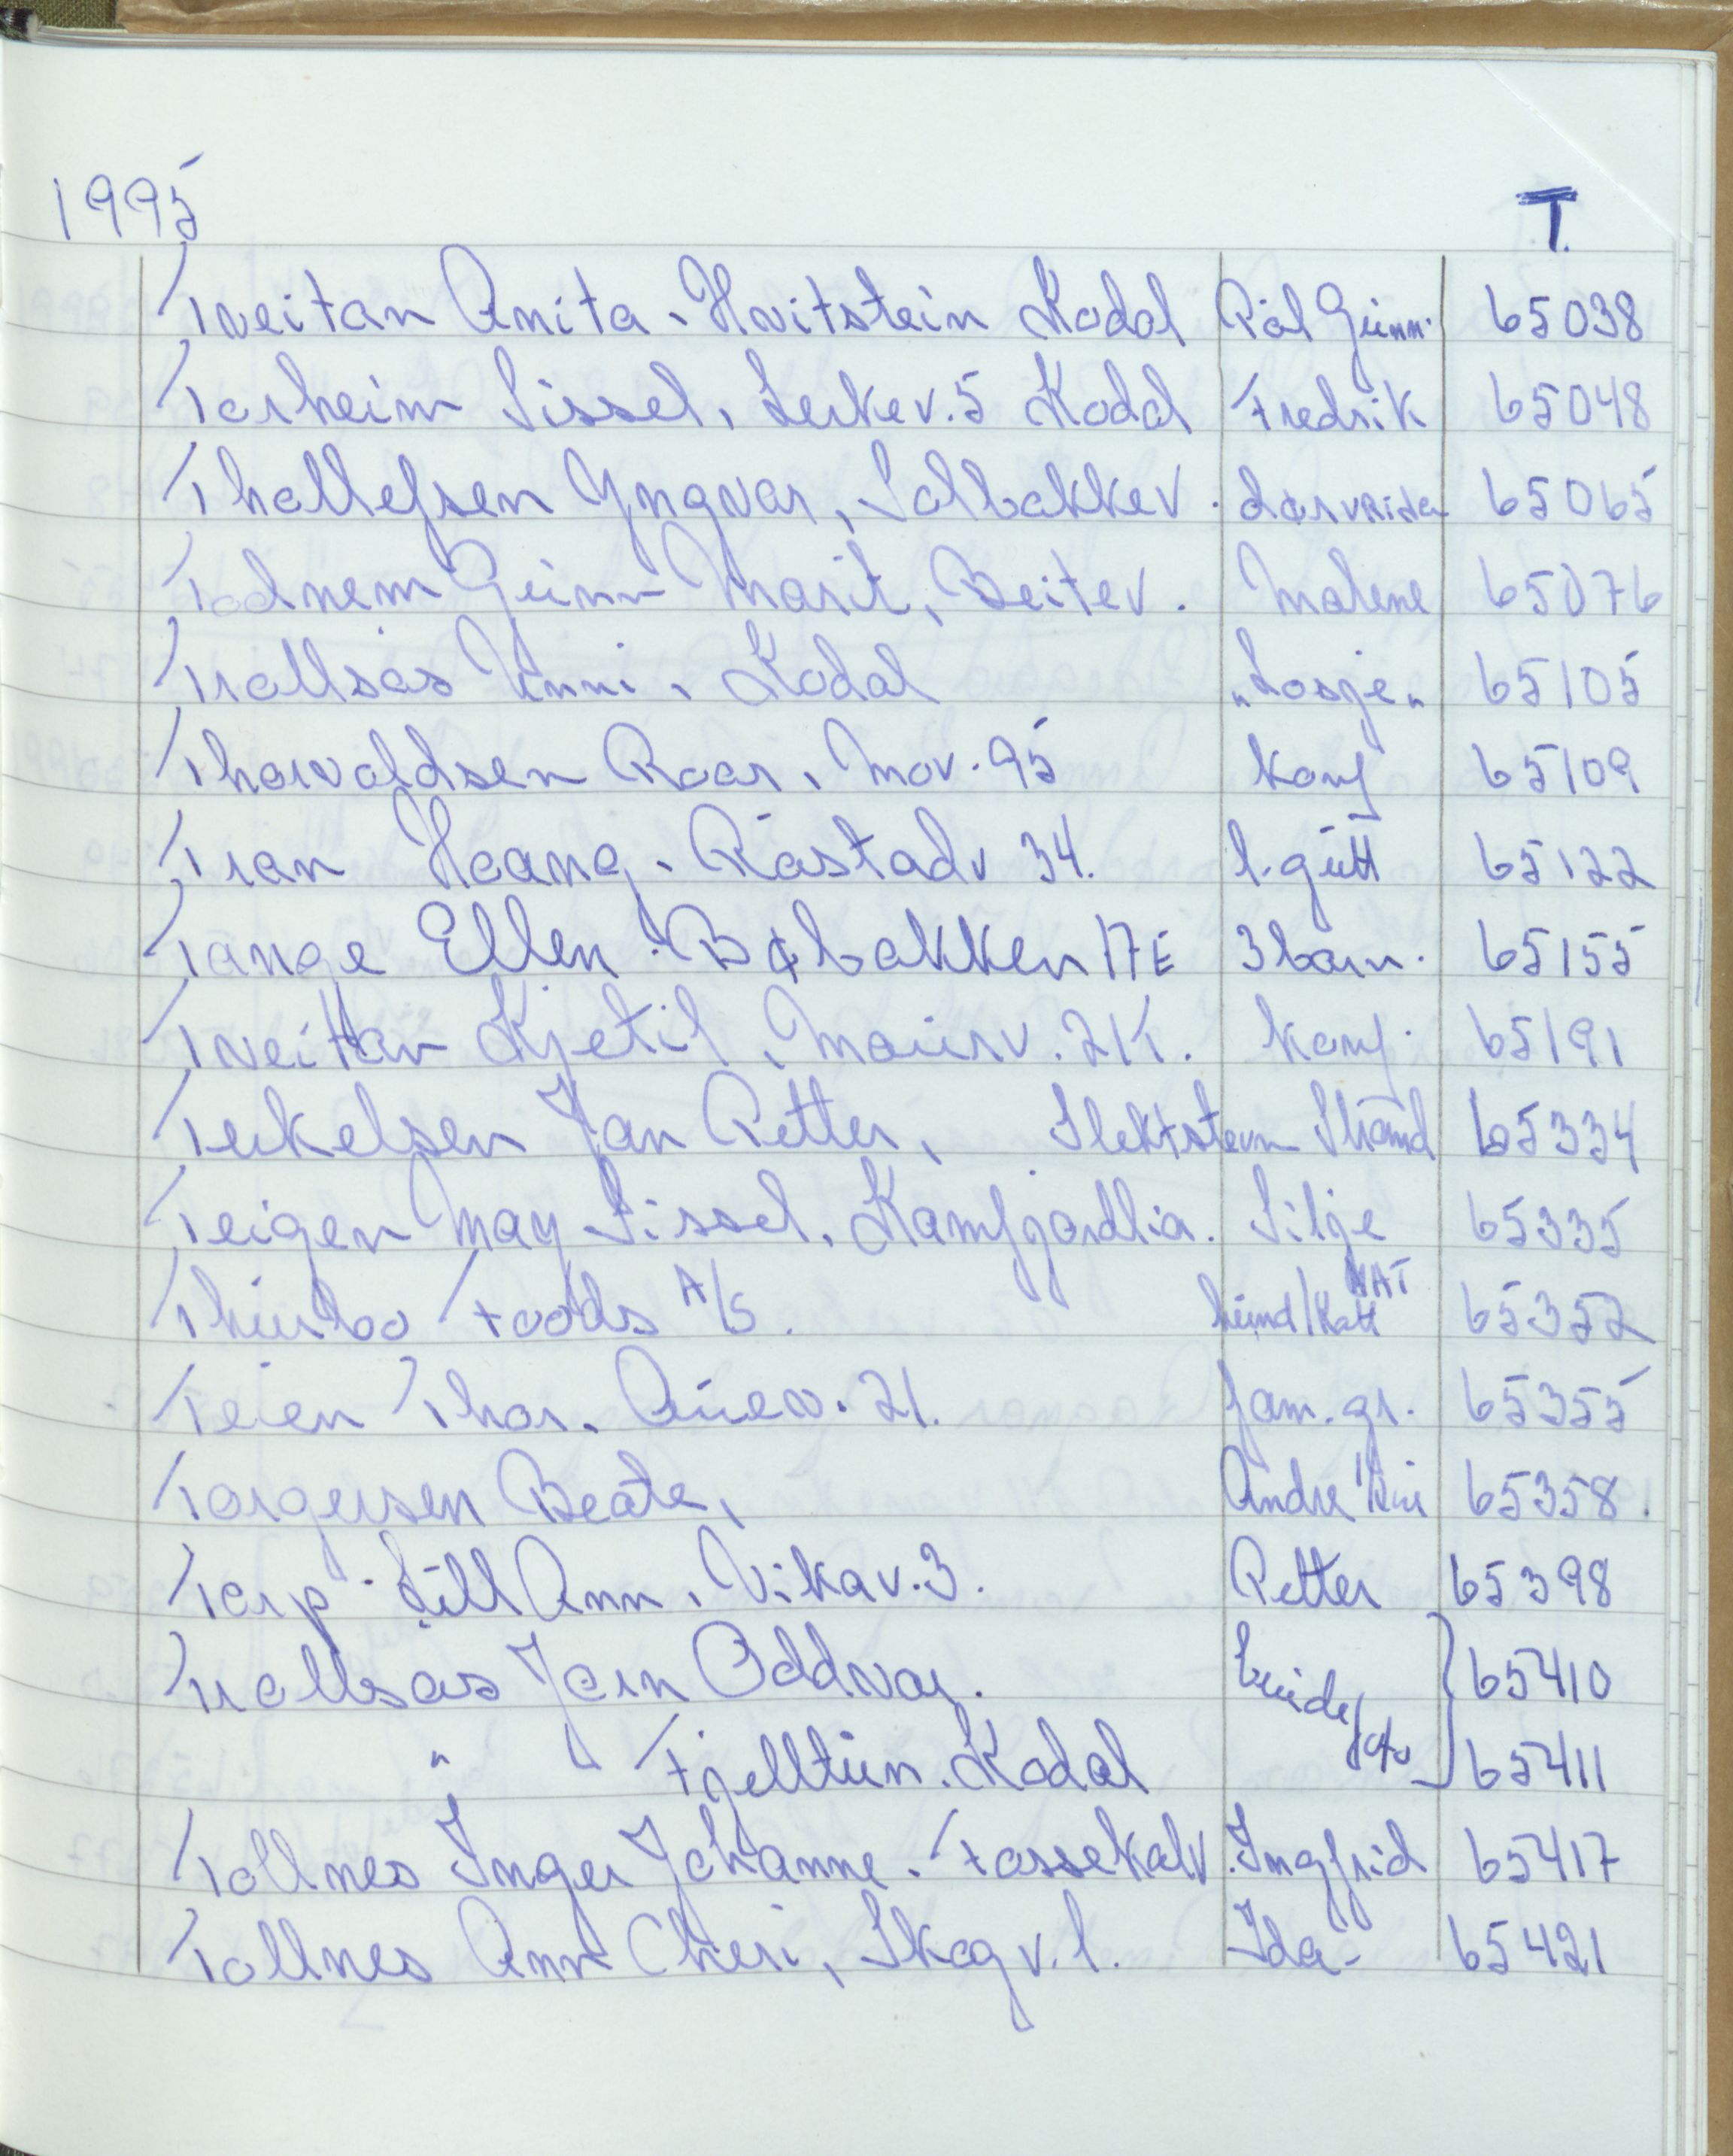 1995 T.
Tveitan Anita, Hvitstein Kodal Pål Gunn. 65038
Torheim Sissel, Lerkev. 5 Kodal Fredrik 65048
Thollefsen Yngvar, Solbakkev. 65065
Todnem Gunn Marit, Beitev. Malene 65076
Trollsås Unni, Kodal "Losje" 65105
Thorvaldsen Roar, nov. 95 konf 65109
Tran Hoang, Råstadv 34. l. gutt 65122
Tange Ellen. Bøbakken 17E 3 barn. 65155
Tveittan Kjetil, Maurv. 2K. konf. 65191
Terkelsen Jan Petter, Slektstevn Strand 65334
Teigen May Sissel, Kamfjordlia. Silje 65335
Thurbo Foods A/S. hund/Katt KAT 65352
Teien Thor, Auev. 21. fam. gr. 65355
Torgersen Beate, Andre 65358.
Tarp Lill Ann, Vikav. 3. Petter 65398
Trollsås Jørn Oddvar. brude/foto } 65410
" " Fjelltun. Kodal 65411
Tollnes Inger Johanne. Fossekalv. Ingfrid 65417
Tollnes Ann Cheri, Skogv. 1. Ida 65421